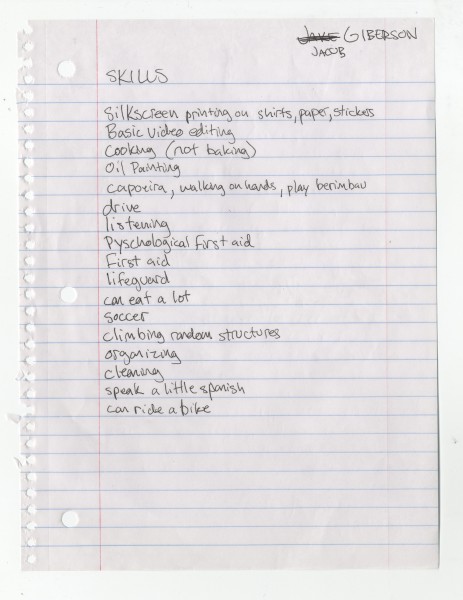 Jake GIBERSON
JACOB
SKILLS
Silkscreen printing on shirts, paper, stickers
Basic video editing
cooking (not baking)
Oil Painting
capoeira, walking on hands, play berimbau
drive
listening
Pyschological First aid
First aid
lifeguard
can eat a lot
soccer
climbing random structures
organizing
cleaning
speak a little spanish
can ride a bike